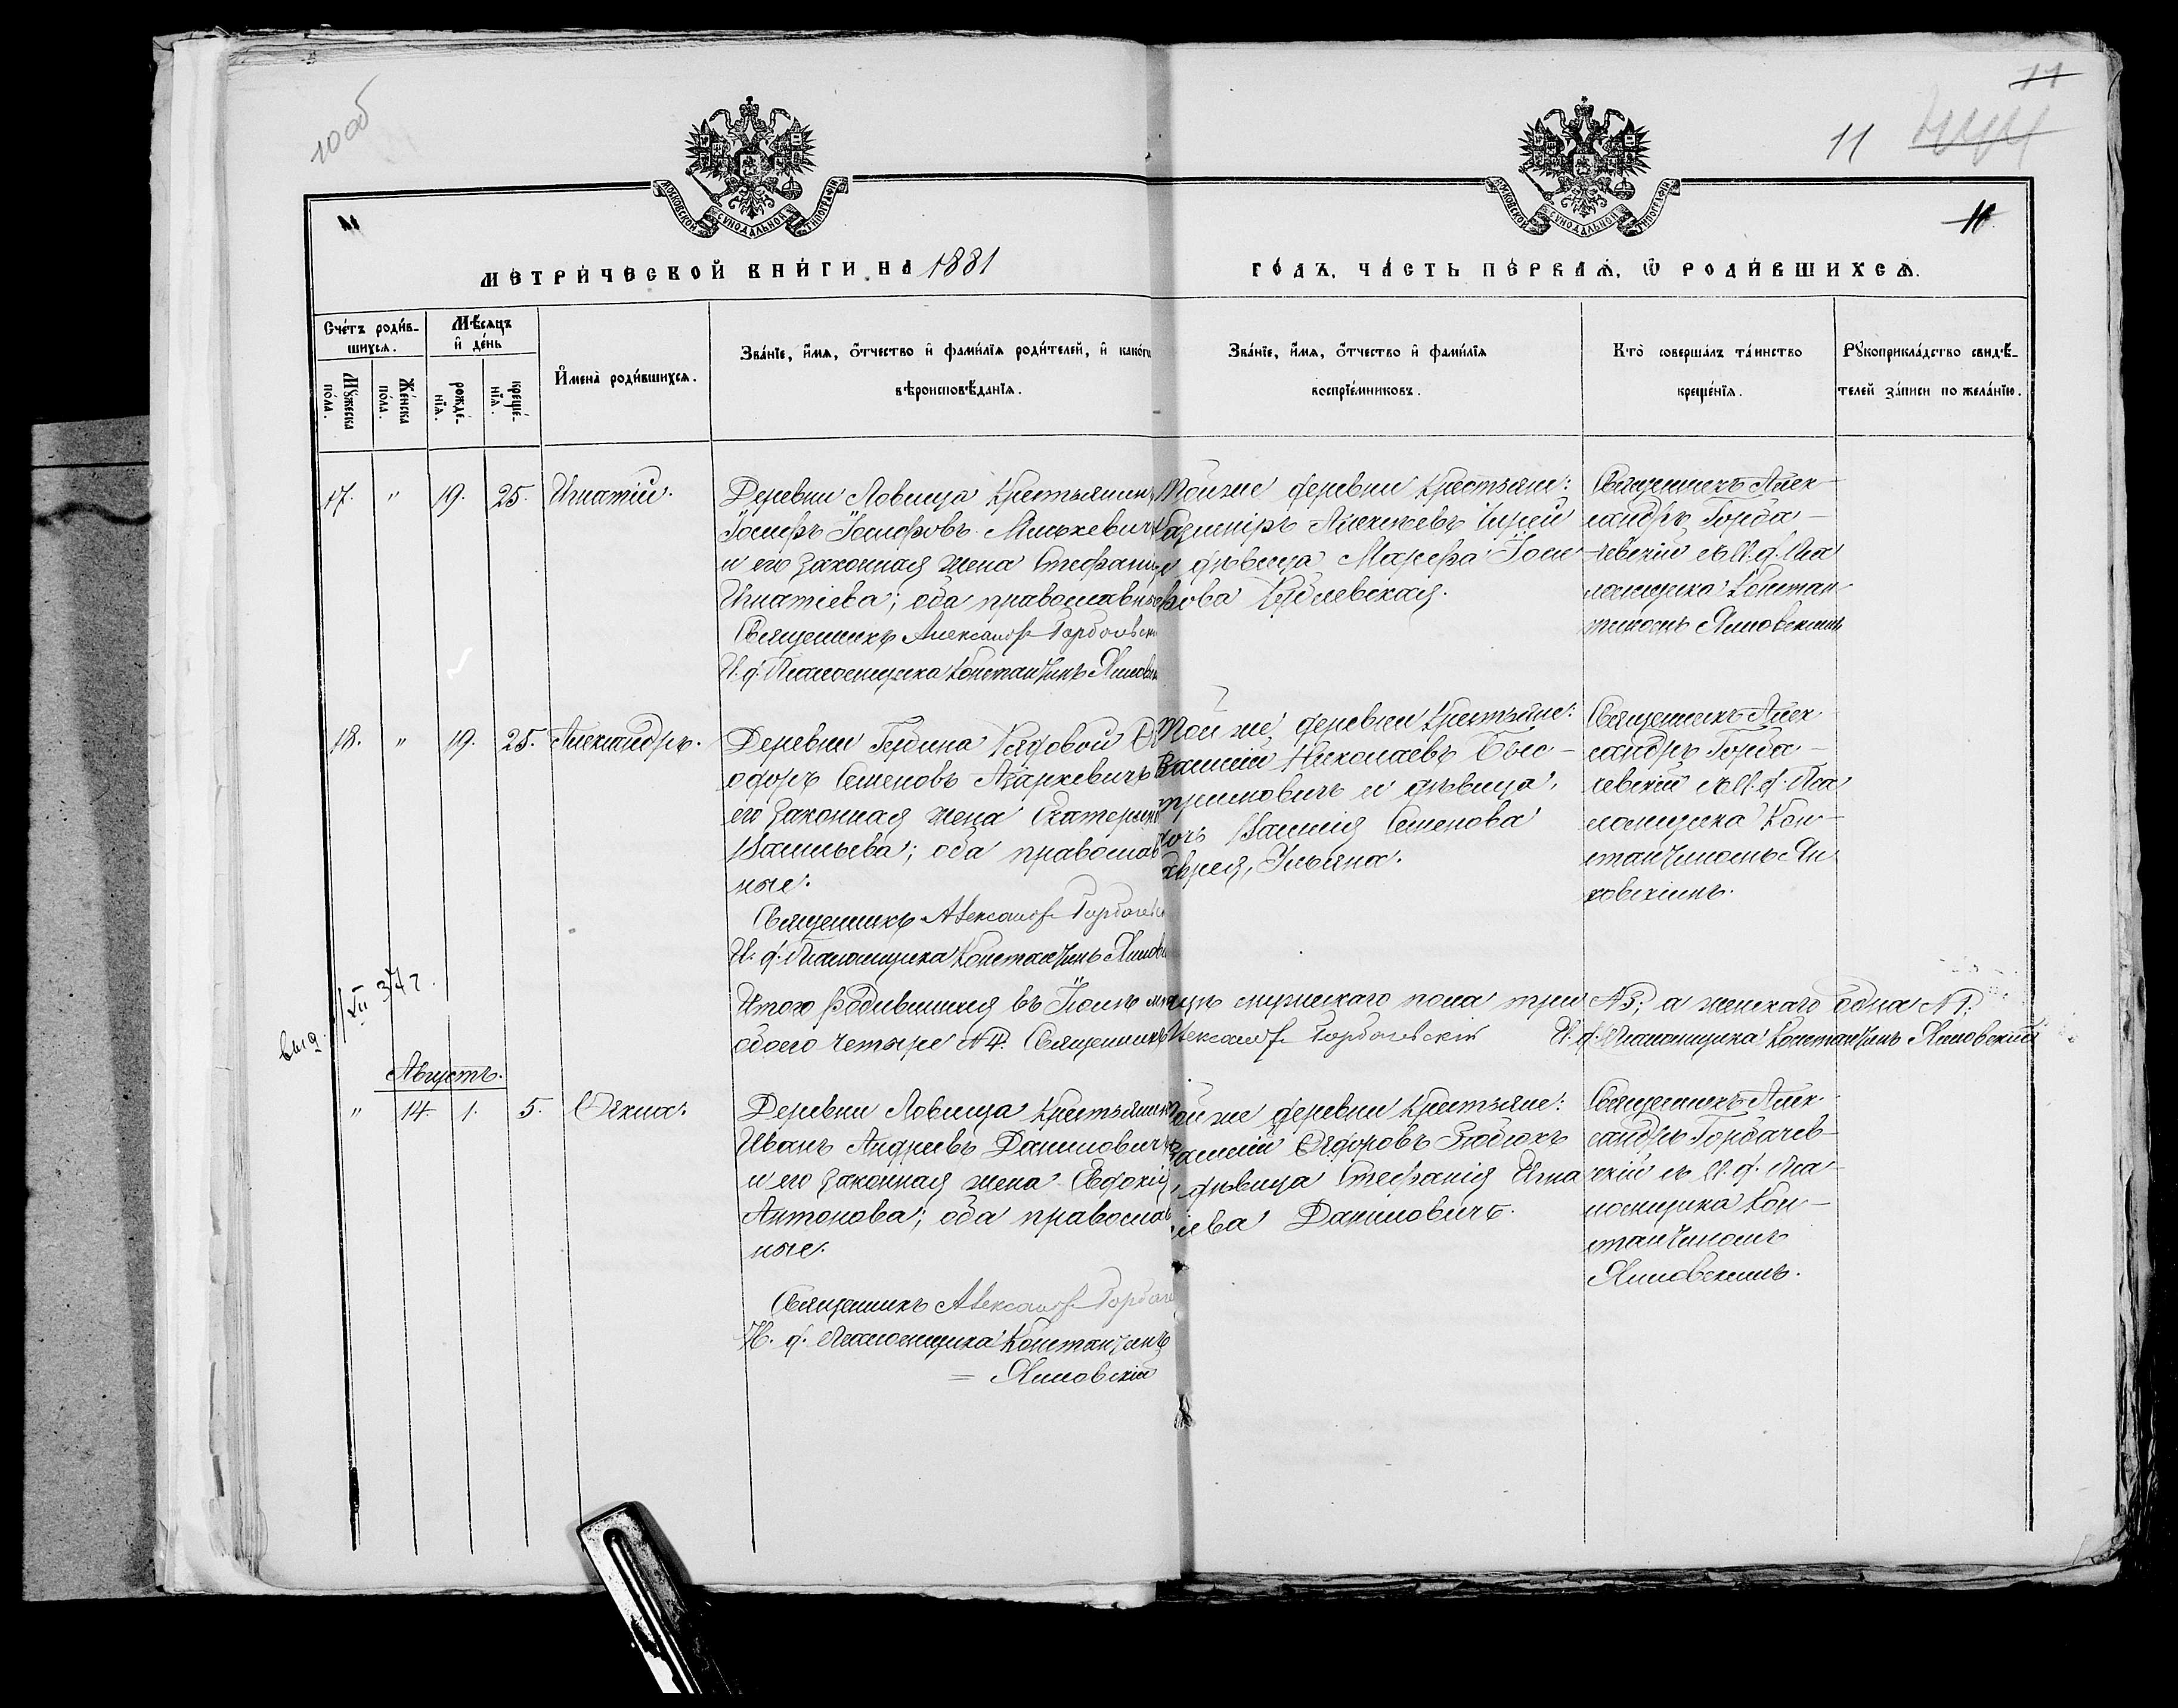 10 об
11
11
МОСКОВСКОЙ СѴНОДАЛЬНОЙ ТИПОГРАФІИ
МОСКОВСКОЙ СѴНОДАЛЬНОЙ ТИПОГРАФІИ
11
МЕТРИЧЕСКОЙ КНИГИ НА 1881
ГОДЪ, ЧАСТЬ ПЕРВАЯ, Ѿ РОДИВШИХСЯ.
Счетъ родив-
шихся.
Мѣсяцъ
и день
Мужеска
пола.
Женска
пола.
рожде-
нія.
креще-
нія.
Имена родившихся.
Званіе, имя, отчество и фамилія родителей, и какогω
вѣроисповѣданія.
Званіе, имя, отчество и фамилія
воспріемниковъ.
Кто совершалъ таинство
крещенія.
Рукоприкладство свидѣ-
телей записи по желанію.
17. " 19. 25. Игнатій.
Деревни Ловица крестьянинъ
Іосифъ Іосифовъ
и его законная жена Стефанія
Игнатіева; оба православные
Священникъ Александръ Горбачевскі
И. д. Псаломщика Константинъ
Той же деревни крестьяне:
и дѣвица Марѳа Іоси
фова
Священникъ Алек
сандръ Горба-
чевскій съ И. д. Пса
ломщика Констан
тиномъ
18. " 19. 25. Александръ.
Деревни Рядовой Ѳе
одоръ Семеновъ Азаркевичъ и
его законная жена Екатерина
Васильева; оба православ
ные.
Священникъ Александръ Горбачевск
И. д. Псаломщика Константинъ
Той же деревни крестьяне:
Василій Николаевъ Быс-
тримовичъ и дѣвица,
дочь Семенова
Ульяна.
Священникъ Алек
сандръ Горба-
чевскій съ И. д. Пса
ломщика Кон-
стантиномъ Ян
ковскимъ.
выд.
Итого родившихся въ Іюлѣ мѣсяцѣ мужескаго пола три №3; а женскаго одна №1;
обоего четыре №4. Священникъ Александръ Горбачевскій И. д. Псаломщика Константинъ
Августъ.
" 14 1. 5. Ѳекла.
Деревни Ловица крестьянинъ
Иванъ Андреевъ Даниловичъ
и его законная жена Евдокія
Антонова; оба православ
ные.
Священникъ Александръ Горбаче
И. д. Псаломщика Константинъ
Той же деревни крестьяне:
Василій Ѳедоровъ
и дѣвица Стефанія Игна
тіева Даниловичъ.
Священникъ Алек
сандръ Горбачев-
скій съ И. д. Пса-
ломщика Кон-
стантиномъ